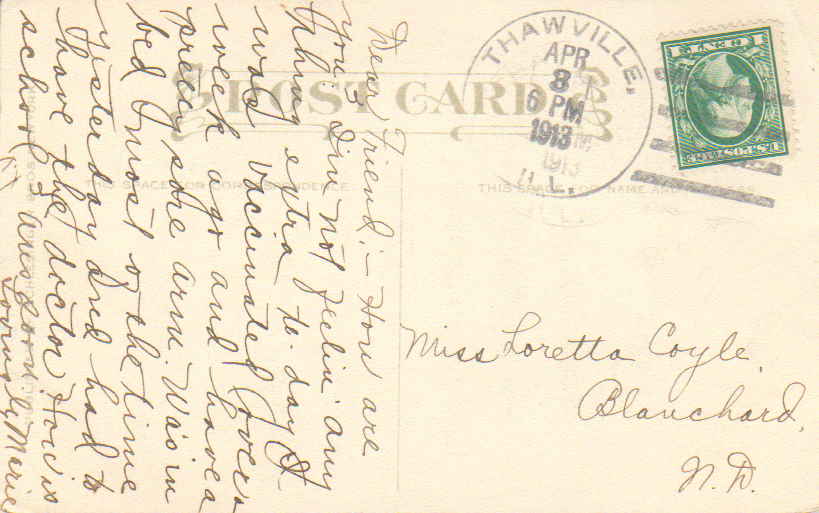 POST CARD
THIS SPACE FOR CORRESPONDENCE.
THIS SPACE FOR NAME AND ADDRESS
THAWVILLE,
APR
8
6 PM
1913
ILL.
Dear Friend:- How are
you? I'm not feelin' any
thing extra to day I
was vaccinated over a
week ago and have a
pretty sore arm. Was in
bed most of the time
yesterday and had to
have the doctor. How is
school? ans soon.
Lovingly Marie
Miss Loretta Coyle
Blanchard,
N. D.